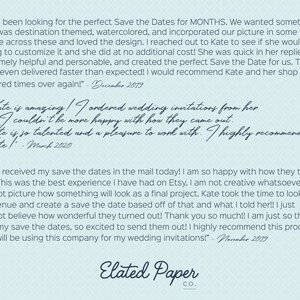 been looking for the perfect Save the Dates for MONTHS. We wanted somet
was destination themed, watercolored, and incorporated our picture in some
e across these and loved the design. I reached out to Kate to see if she would
g to customize it and she did at no additional cost! She was quick in her replie
mely helpful and personable, and created the perfect Save the Date for us. T
even delivered faster than expected! I would recommend Kate and her shop
red times over again!" - December 2019
te is amazing! I ordered wedding invitations from her
I couldn't be more happy with how they came out.
te is so talented and a pleasure to work with. I highly recommen
!" - March 2020
received my save the dates in the mail today! I am so happy with how they t
This was the best experience I have had on Etsy. I am not creative whatsoeve
ot picture how something will look as a final project. Kate took the time to look
enue and create a save the date based off of that and what I told her!! I just
ot believe how wonderful they turned out! Thank you so much!! I am just so th
ny save the dates, so excited to send them out! I highly recommend this prod
will be using this company for my wedding invitations!" - November 2019
Elated Paper
CO.